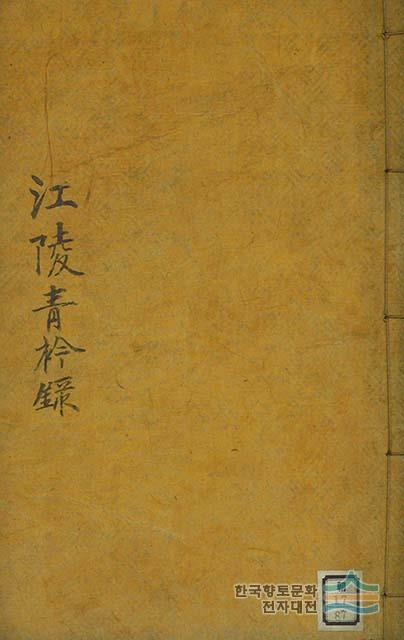 江陵青衿錄
한국향토문화
전자대전
17
87